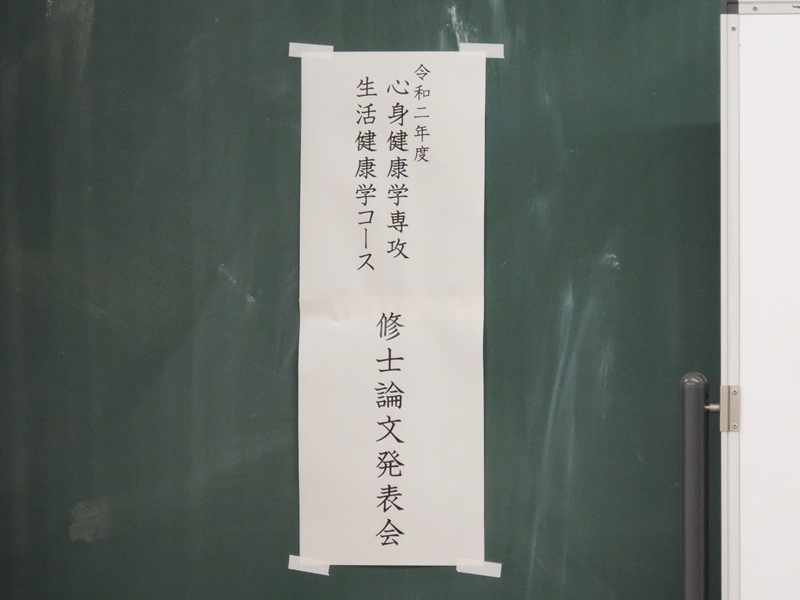 令和二年度
心身健康学専攻
生活健康学コース
修士論文発表会